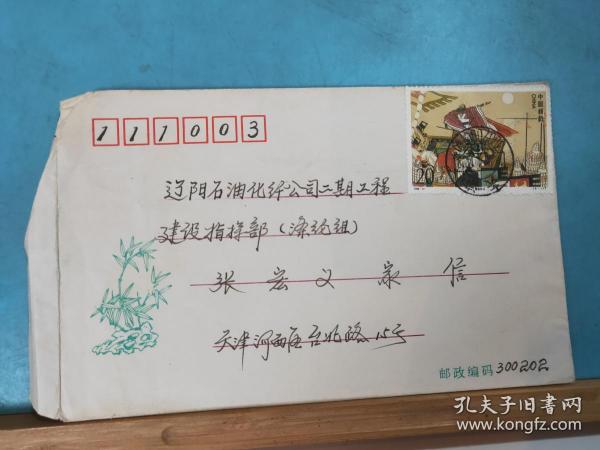 111003
中国邮政
CHINA
20
辽阳石油化纤公司二期工程
建设指挥部（涤纶组）
张宏义 家信
天津河西区台北路15号
邮政编码300202
孔夫子旧书网
www.kongfz.com